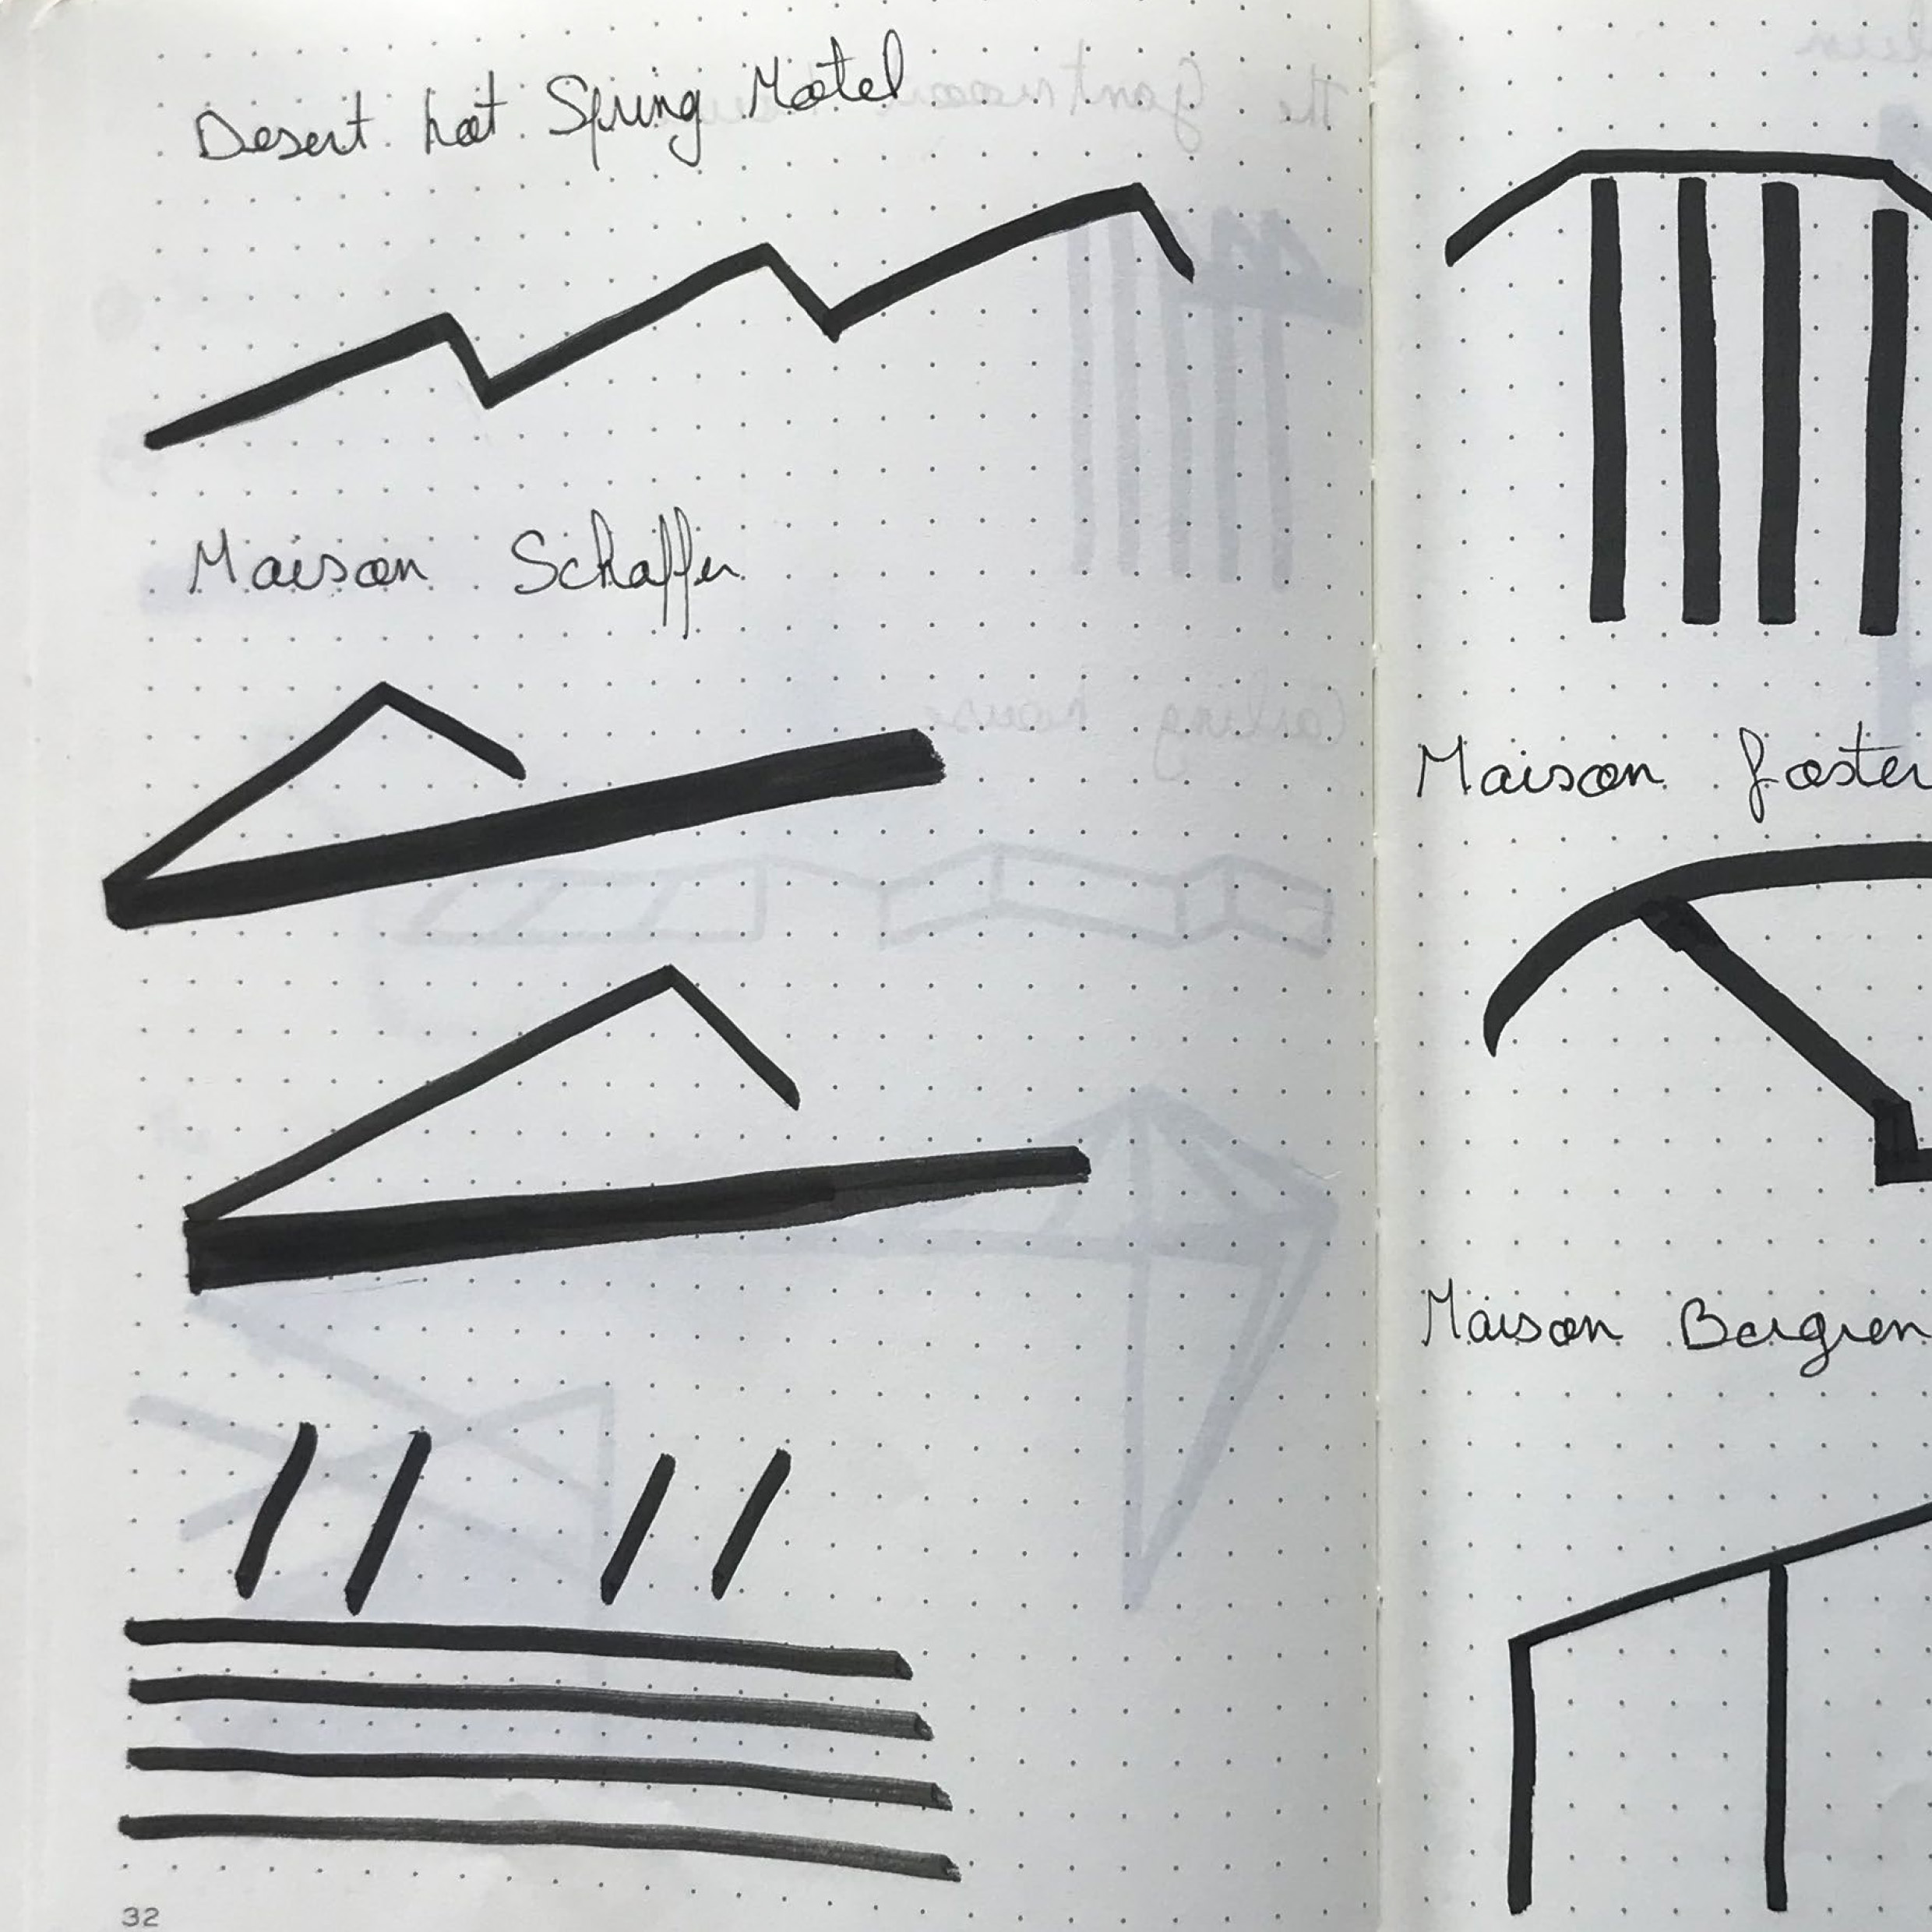 Desert hot Spring Motel
Maison Schaffer
32
Maison foster
Maison Bergren